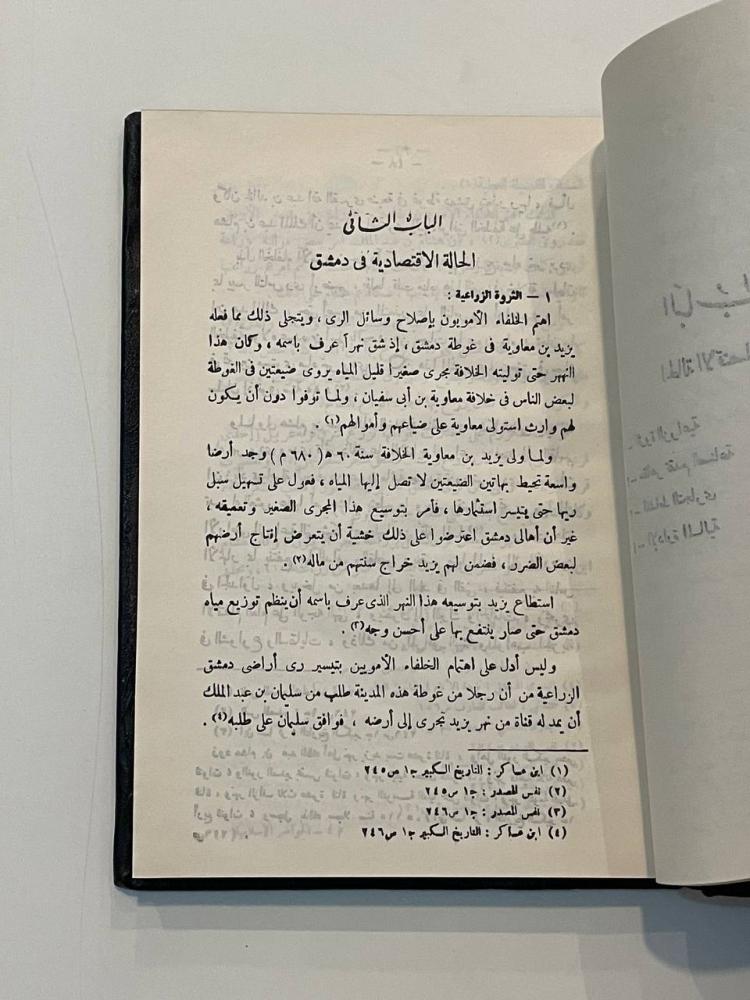 الباب الثانى
الحالة الاقتصادية فى دمشق
١ — الثروة الزراعية :
اهتم الخلفاء الأمويون بإصلاح وسائل الرى ، ويتجلى ذلك مما فعله
يزيد بن معاوية فى غوطة دمشق ، إذ شق نهراً عرف باسمه ، وكان هذا
النهر حتى توليته الخلافة مجرى صغيرا قليل المياه يروى ضيعتين فى الغوطة
لبعض الناس فى خلافة معاوية بن أبى سفيان ، ولما توفوا دون أن يكون
لهم وارث استولى معاوية على ضياعهم وأموالهم(١) .
ولما ولى يزيد بن معاوية الخلافة سنة ٦٠ ه ( ٦٨٠ م ) وجد أرضا
واسعة تحيط بهاتين الضيعتين لا تصل إليها المياه ، فعول على تسهيل سبل
ريها حتى يتيسر استثمارها ، فأمر بتوسيع هذا المجرى الصغير وتعميقه ،
غير أن أهالى دمشق اعترضوا على ذلك خشية أن يتعرض إنتاج أرضهم
لبعض الضرر ، فضمن لهم يزيد خراج سنتهم من ماله(٢) .
استطاع يزيد بتوسيعه هذا النهر الذى عرف باسمه أن ينظم توزيع مياه
دمشق حتى صار ينتفع بها على أحسن وجه(٣) .
وليس أدل على اهتمام الخلفاء الأمويين بتيسير رى أراضى دمشق
الزراعية من أن رجلا من غوطة هذه المدينة طلب من سليمان بن عبد الملك
أن يمد له قناة من نهر يزيد تجرى إلى أرضه ، فوافق سليمان على طلبه(٤) .
(١) ابن عساكر : التاريخ الكبير ج١ ص ٢٤٥
(٢) نفس المصدر : ج١ ص ٢٤٥
(٣) نفس المصدر : ج١ ص ٢٤٦
(٤) ابن عساكر : التاريخ الكبير ج١ ص ٢٤٦